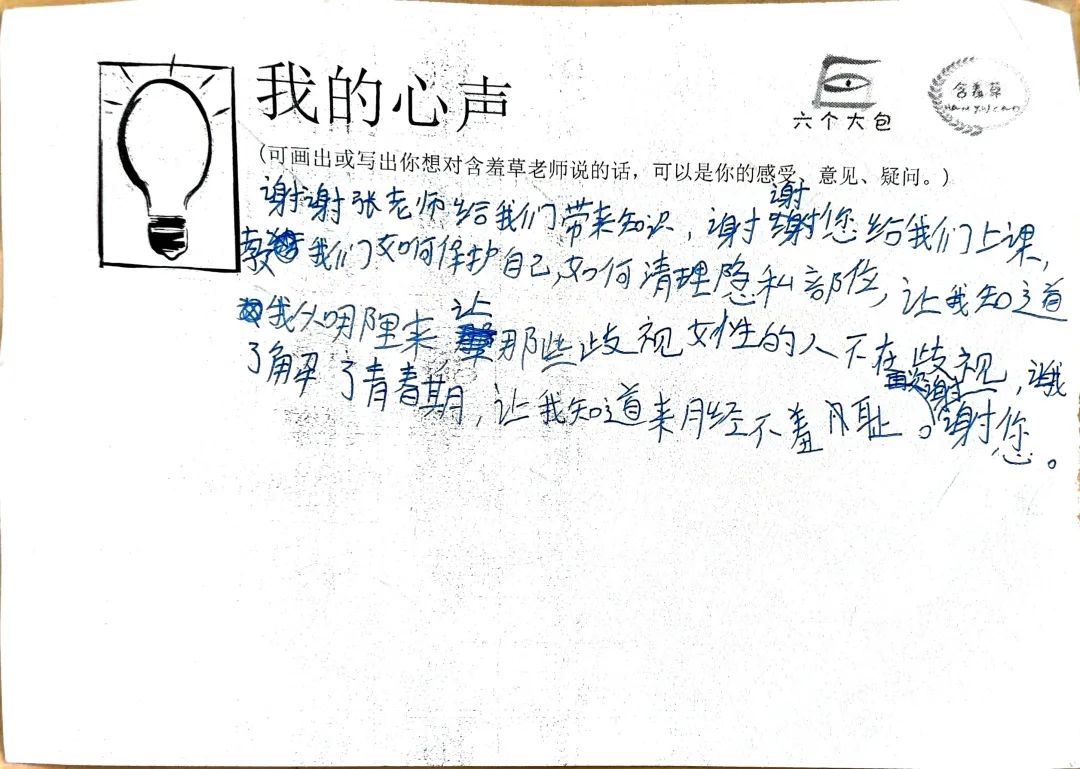 我的心声
六个大包
含羞草
(可画出或写出你想对含羞草老师说的话，可以是你的感受、意见、疑问。)
谢谢张老师给我们带来知识，谢谢您给我们上课，
教我们如何保护自己，如何清理隐私部位，让我知道
我从哪里来 让那些歧视女性的人不在歧视，让我
了解了青春期，让我知道来月经不羞耻。再次谢谢谢您。